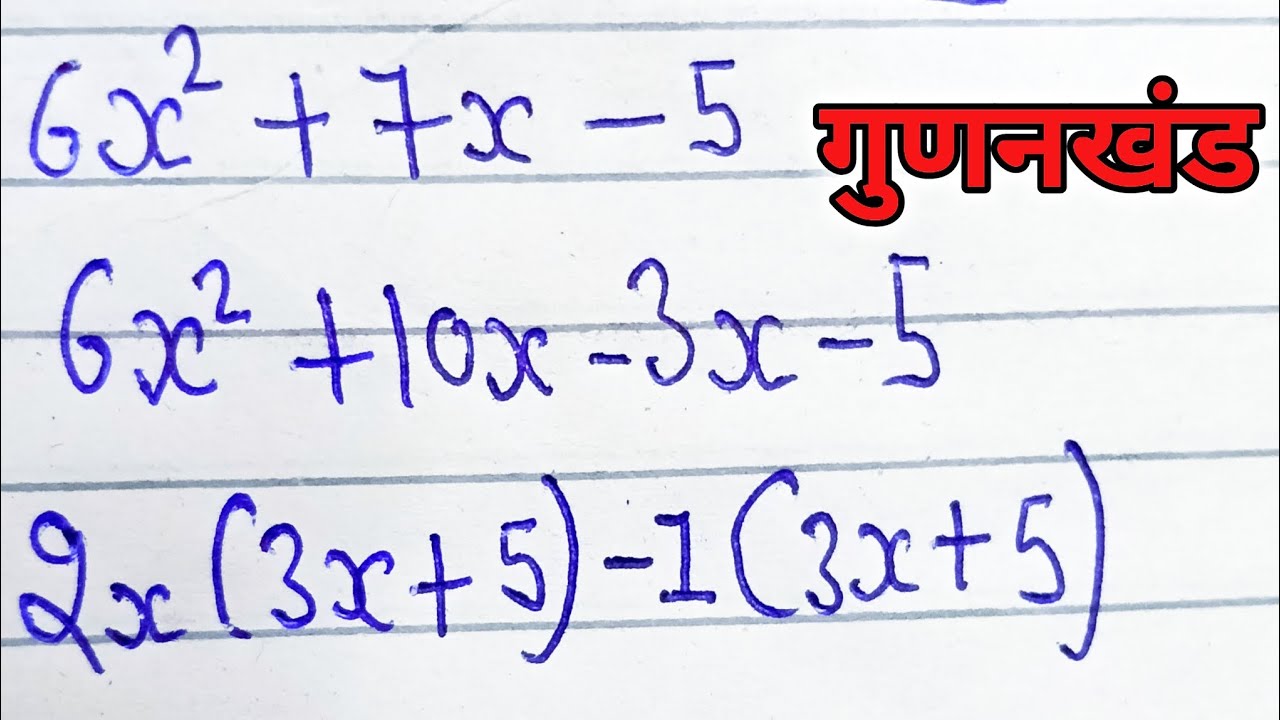 6x² + 7x - 5
गुणनखंड
6x² + 10x - 3x - 5
2x(3x + 5) - 1(3x + 5)